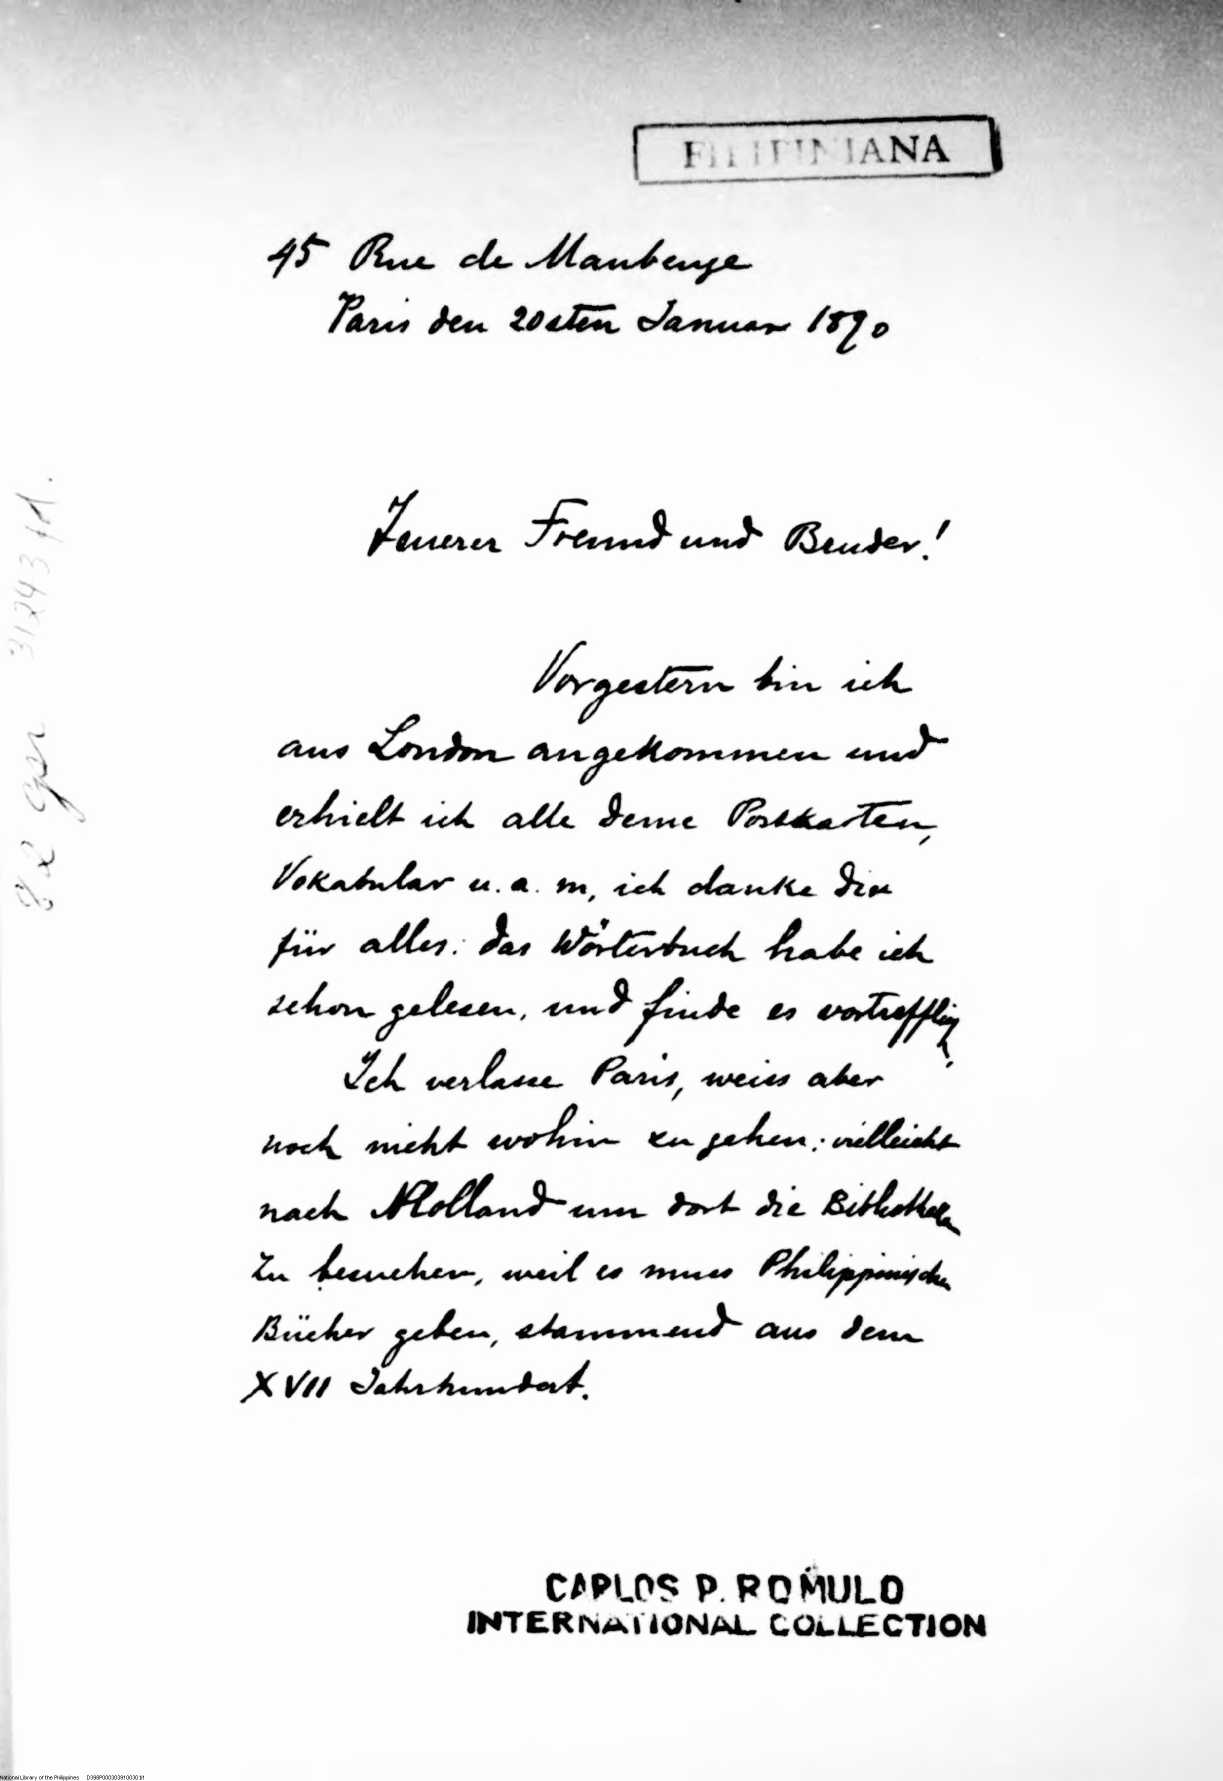 FILIPINIANA
45 Rue de Maubeuge
Paris den 20sten Januar 1890
Teuerer Freund und Bruder!
Vorgestern bin ich
aus London angekommen und
erhielt ich alle deine Postkarten,
Vokabular u. a. m, ich danke dir
für alles: das Wörterbuch habe ich
schon gelesen, und finde es vortrefflich.
Ich verlasse Paris, weiss aber
noch nicht wohin zu gehen: vielleicht
nach Holland um dort die Bibliotheken
zu besuchen, weil es muss Philippinische
Bücher geben, stammend aus dem
XVII Jahrhundert.
CARLOS P. ROMULO
INTERNATIONAL COLLECTION
National Library of the Philippines